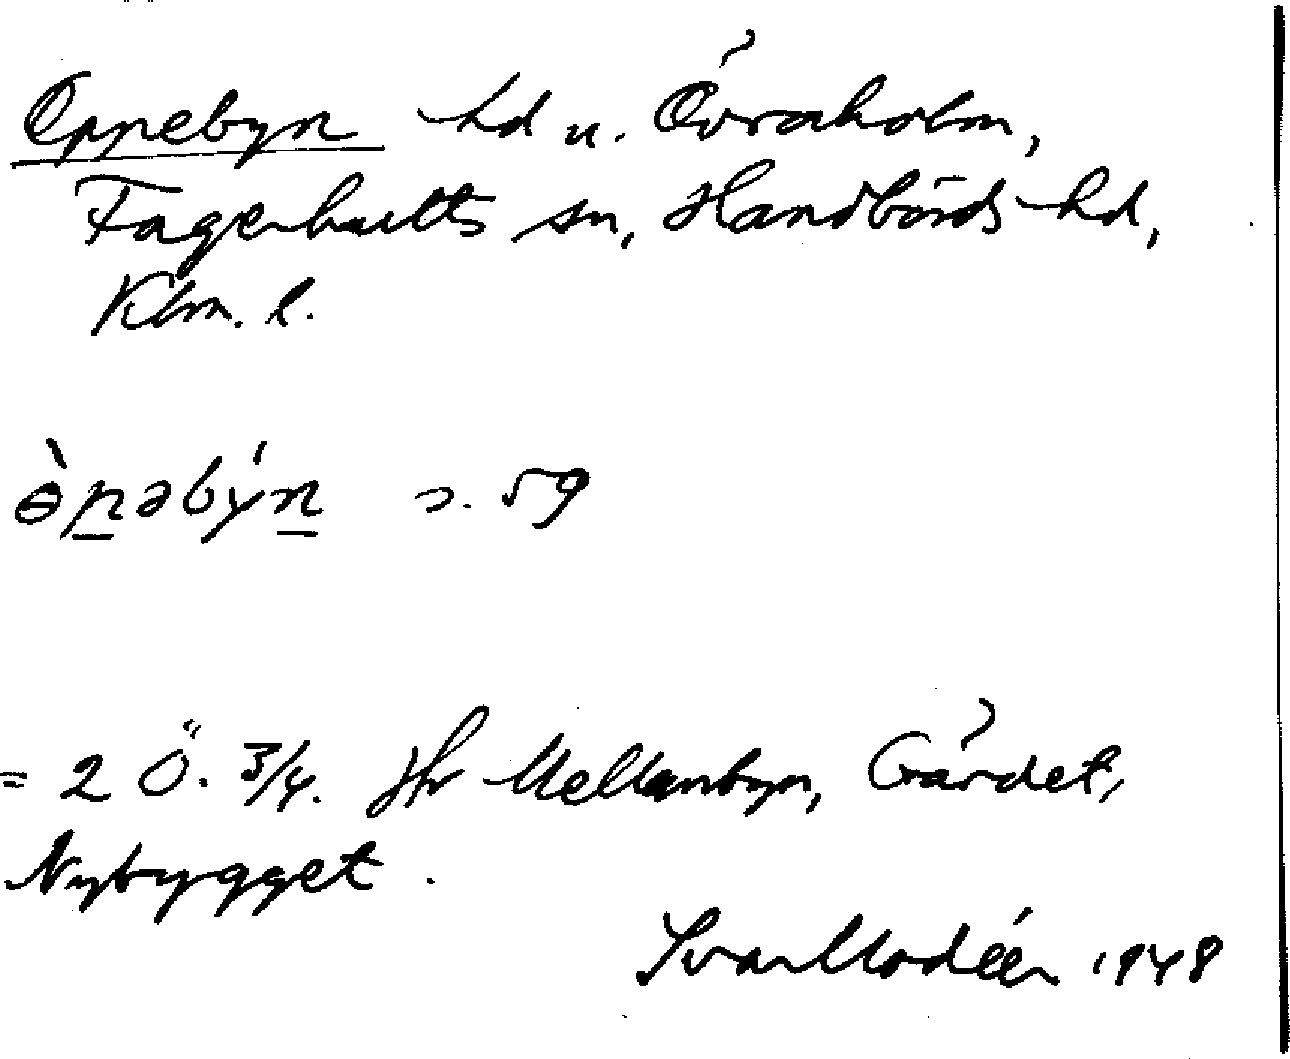 Öppnebyn hd u. Övraholm,
Fagerhults sn, Handbörds hd,
Klm. l.
s. 59
= 2 Ö. 3/4. Jfr Mellanbyn, Gärdet,
Nybygget.
Ivar Modéer 1948